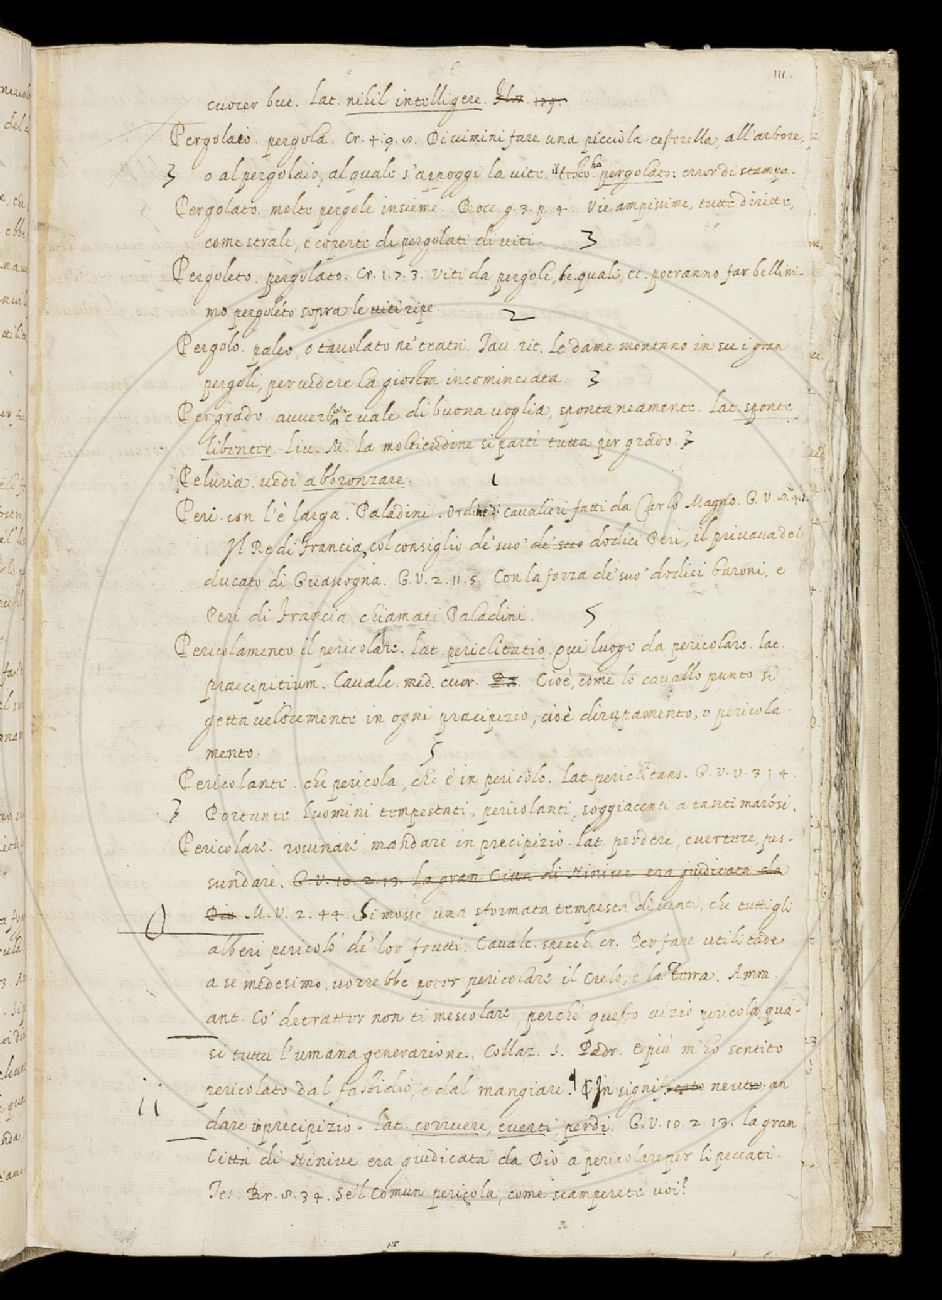 111.
cuocer bue. Lat. nihil intelligere.
Pergolato. pergola. Cr. 4. 9. 8. Di vimini fare una picciola cesterella, all'arbore,
3 o al pergolaio, al quale s'appoggi la vite. il testo ha pergolato: error di stampa.
Pergolato. molte pergole insieme. Bocc. g. 3. p. 4. Vie ampissime, tutte diritte,
come strale, e coperte di pergolati di viti. 3
Pergoleto. pergolato. Cr. 1. 7. 3. Viti da pergole, le quali, ec. potranno far bellissi-
mo pergoléto sopra le viti ripe. 2
Pergolo. palco, o tavolato ne' teatri. Tav. rit. Le dame montanno in su i gran
pergoli, per vedere la giostra incominciata. 3
Per grado. avverbialm. e vale di buona voglia, spontaneamente. Lat. sponte,
libenter. Liv. M. La moltitudine si partì tutta per grado. 3
Peluria. vedi abbronzare. 1
Peri. con l'è larga. Paladini. Ordine di cavalieri fatti da Carlo Magno. G. V. 8. 4.
Il Re di Francia, col consiglio de' suo' de' suo dodici Peri, il privava del
ducato di Guascogna. G. V. 2. 11. 5. Con la forza de' suo' dodici baroni, e
Peri di Francia, chiamati Paladini. 5
Pericolamento il pericolare. Lat. periclitatio. Qui luogo da pericolare. lat.
praecipitium. Cavalc. med. cuor. Cioè, come lo cavallo punto si
getta velocemente in ogni precipizio, cioè dirupamento, o pericola-
mento. 5
Pericolante. che pericola, che è in pericolo. Lat. periclitans. G. V. 11. 3. 14.
3 Portunte huomini tempestati, pericolanti, soggiacenti a tanti marósi.
Pericolare. rovinare, mandare in precipizio. Lat. perdere, evertere, pes-
sundare. G. V. 10. 2. 13. La gran Città di Ninive era giudicata da
Dio M. V. 2. 44. Si mosse una sformata tempesta di venti, che tutti gli
alberi pericolò de' lor frutti. Cavalc. specch. cr. Per fare utilitade
a se medesimo, vorrebbe poter pericolare il Cielo, e la Terra. Amm.
ant. Co' detrattor non ti mescolare, perchè questo vizio pericola qua-
si tutta l'umana generazione. Collaz. S. Padr. E più m'ho sentito
pericolato dal fastidio, e dal mangiare. In signific. neutr. an
11 dare in precipizio. Lat. corruere, everti, perdi. G. V. 10. 2. 13. La gran
Città di Ninive era giudicata da Dio a pericolare per li peccati.
Tes. Br. 8. 34. Se 'l Comun pericola, come scamperete voi?